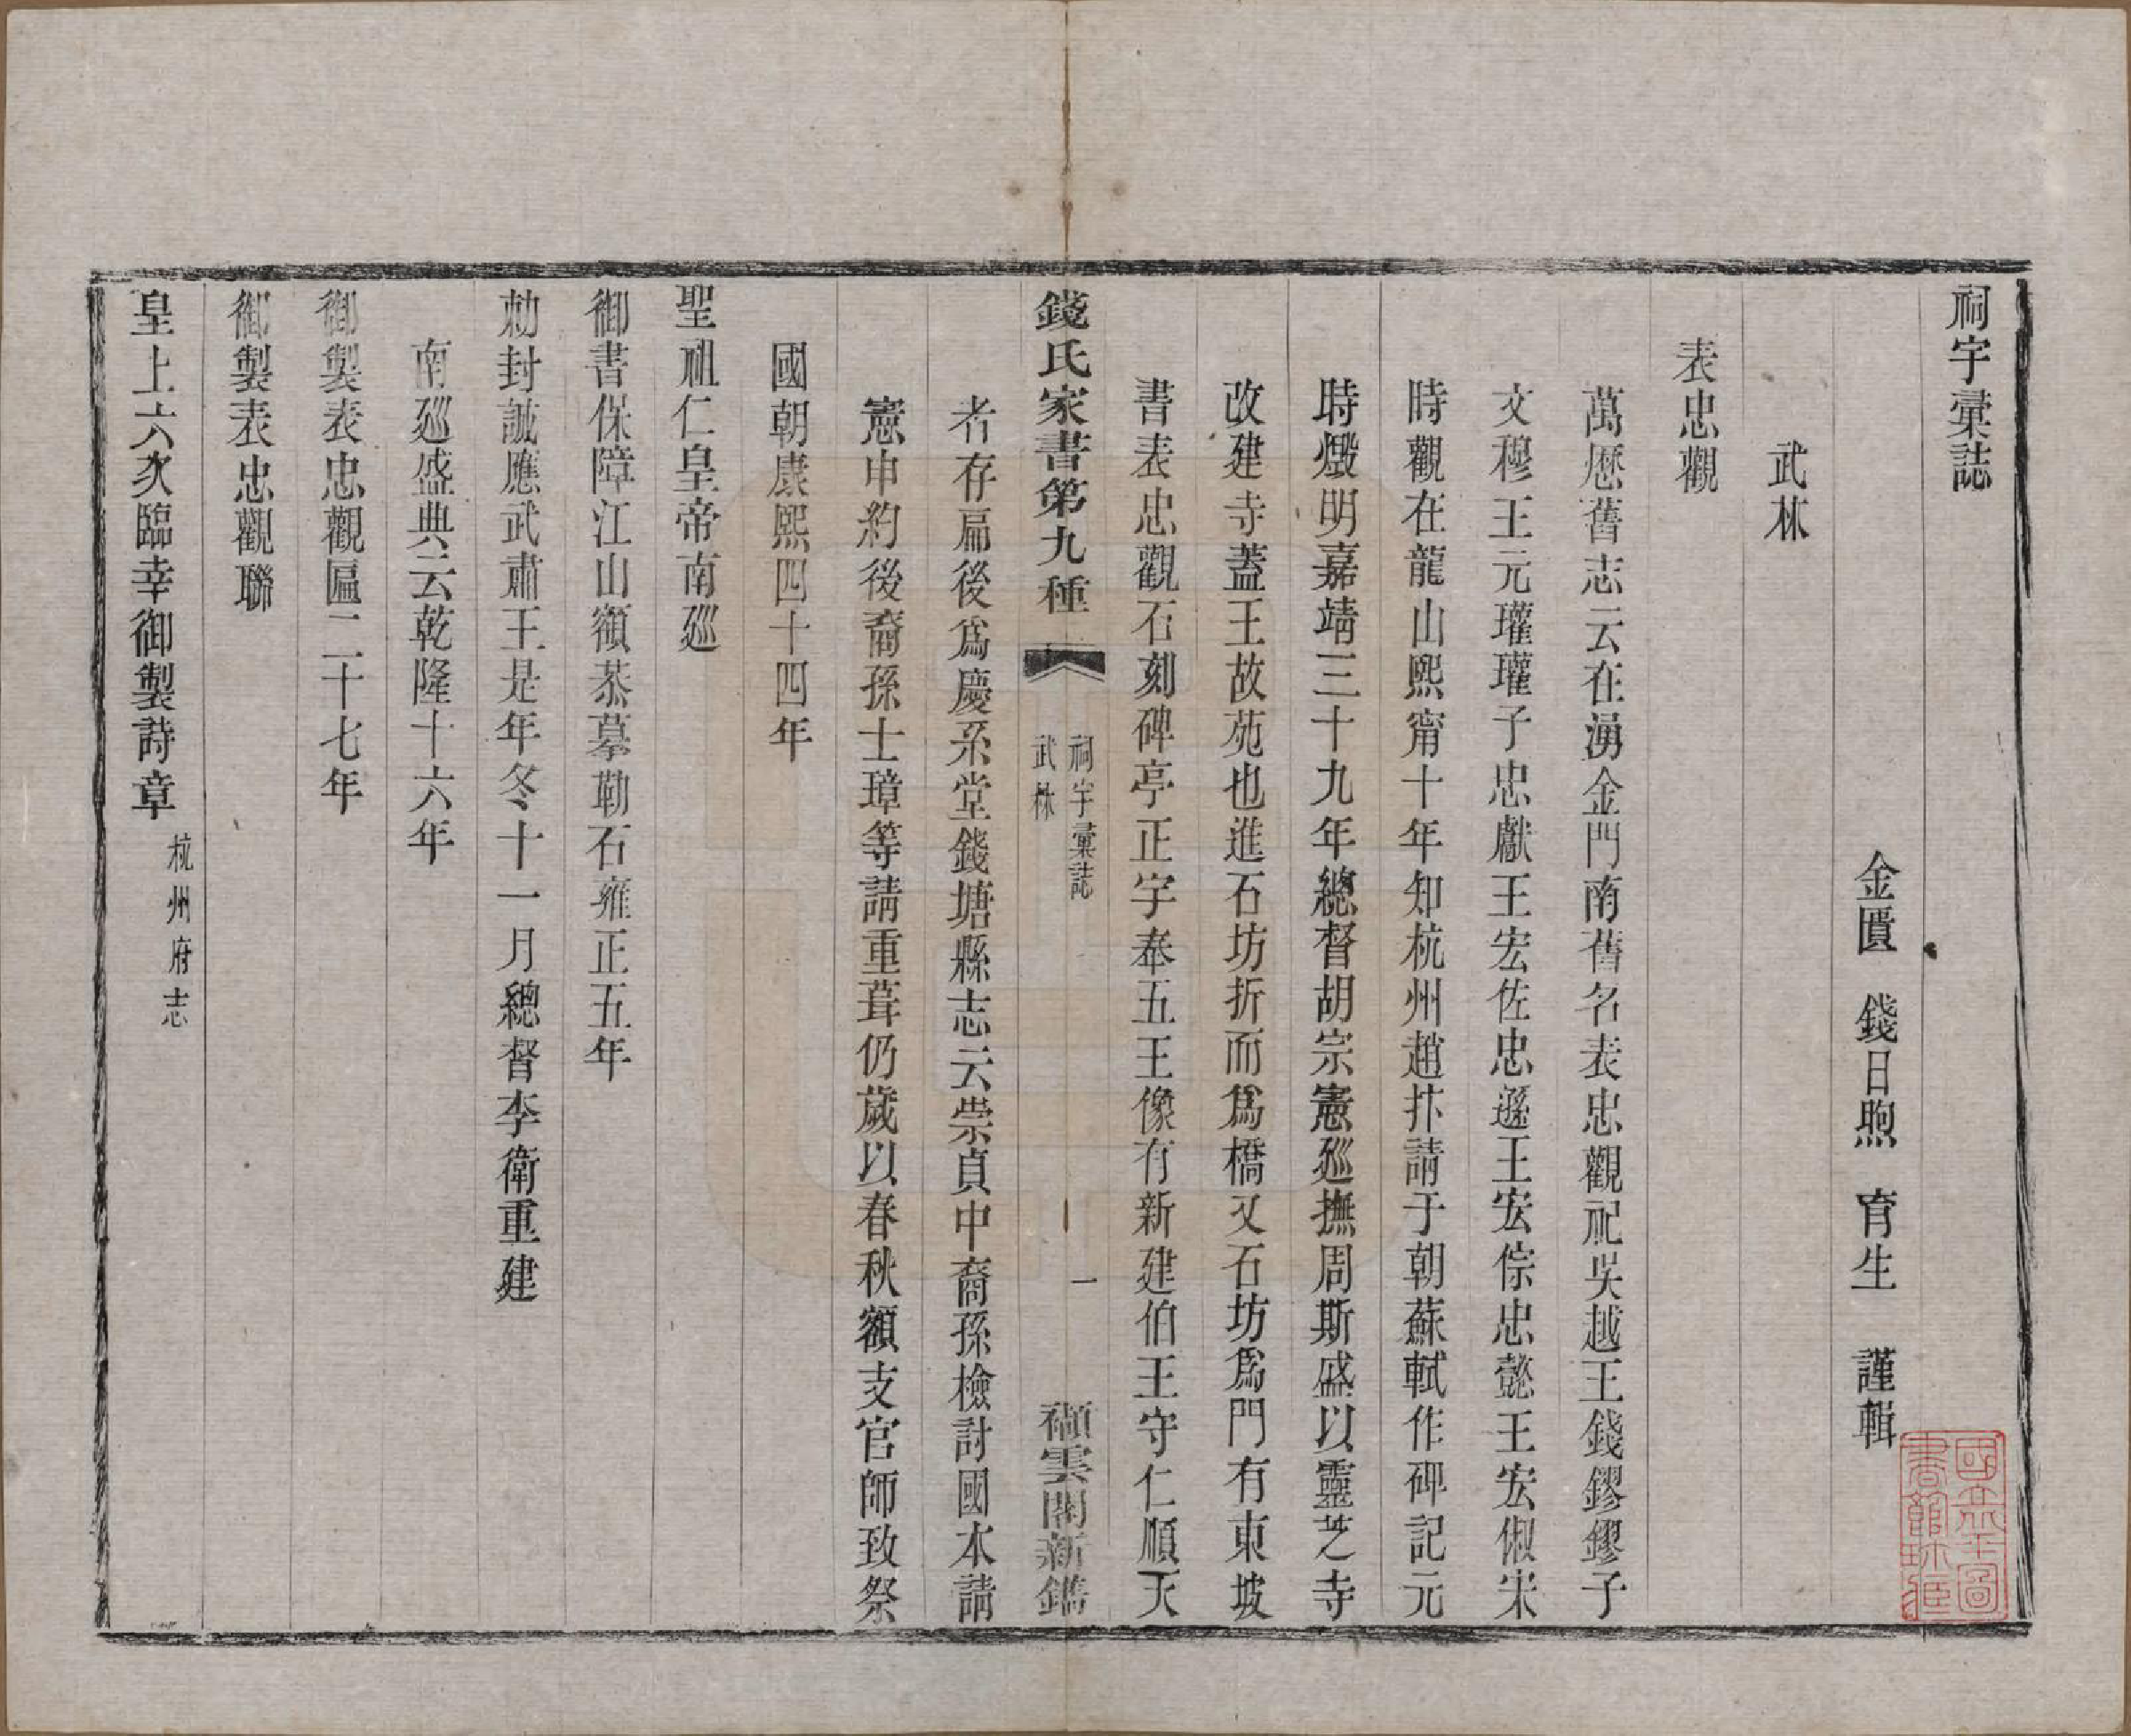 祠宇彙誌
金匱　錢日煦　育生　謹輯
武林
表忠觀
萬歷舊志云在湧金門南舊名表忠觀祀吳越王錢鏐鏐子
文穆王元瓘瓘子忠獻王宏佐忠遜王宏倧忠懿王宏俶宋
時觀在龍山熙甯十年知杭州趙抃請于朝蘇軾作碑記元
時燬明嘉靖三十九年總督胡宗憲巡撫周斯盛以靈芝寺
改建寺蓋王故苑也進石坊折而爲橋又石坊爲門有東坡
書表忠觀石刻碑亭正宇奉五王像有新建伯王守仁順天
錢氏家書第九種
祠宇彙誌
武林
一
纈雲閣新鐫
者存扁後爲慶系堂錢塘縣志云崇貞中裔孫檢討國本請
憲申約後裔孫士璋等請重葺仍歲以春秋額支官師致祭
國朝康熙四十四年
聖祖仁皇帝南巡
御書保障江山額恭摹勒石雍正五年
勅封誠應武肅王是年冬十一月總督李衛重建
南巡盛典云乾隆十六年
御製表忠觀匾二十七年
御製表忠觀聯
皇上六次臨幸御製詩章杭州府志